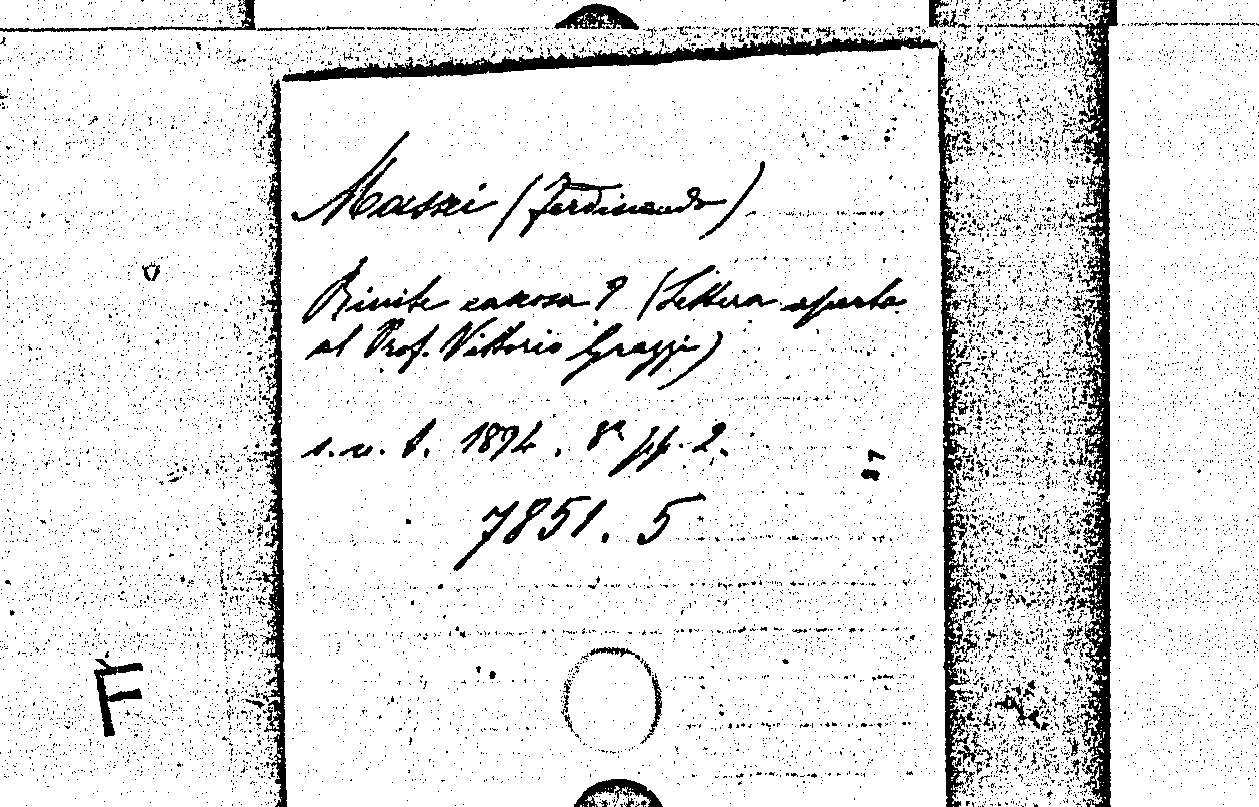 Massei (Ferdinando)
Rinite caseosa? (Lettera aperta
al Prof. Vittorio Grazzi)
s. n. t. 1894. 8º pp. 2.
87
7851. 5
F